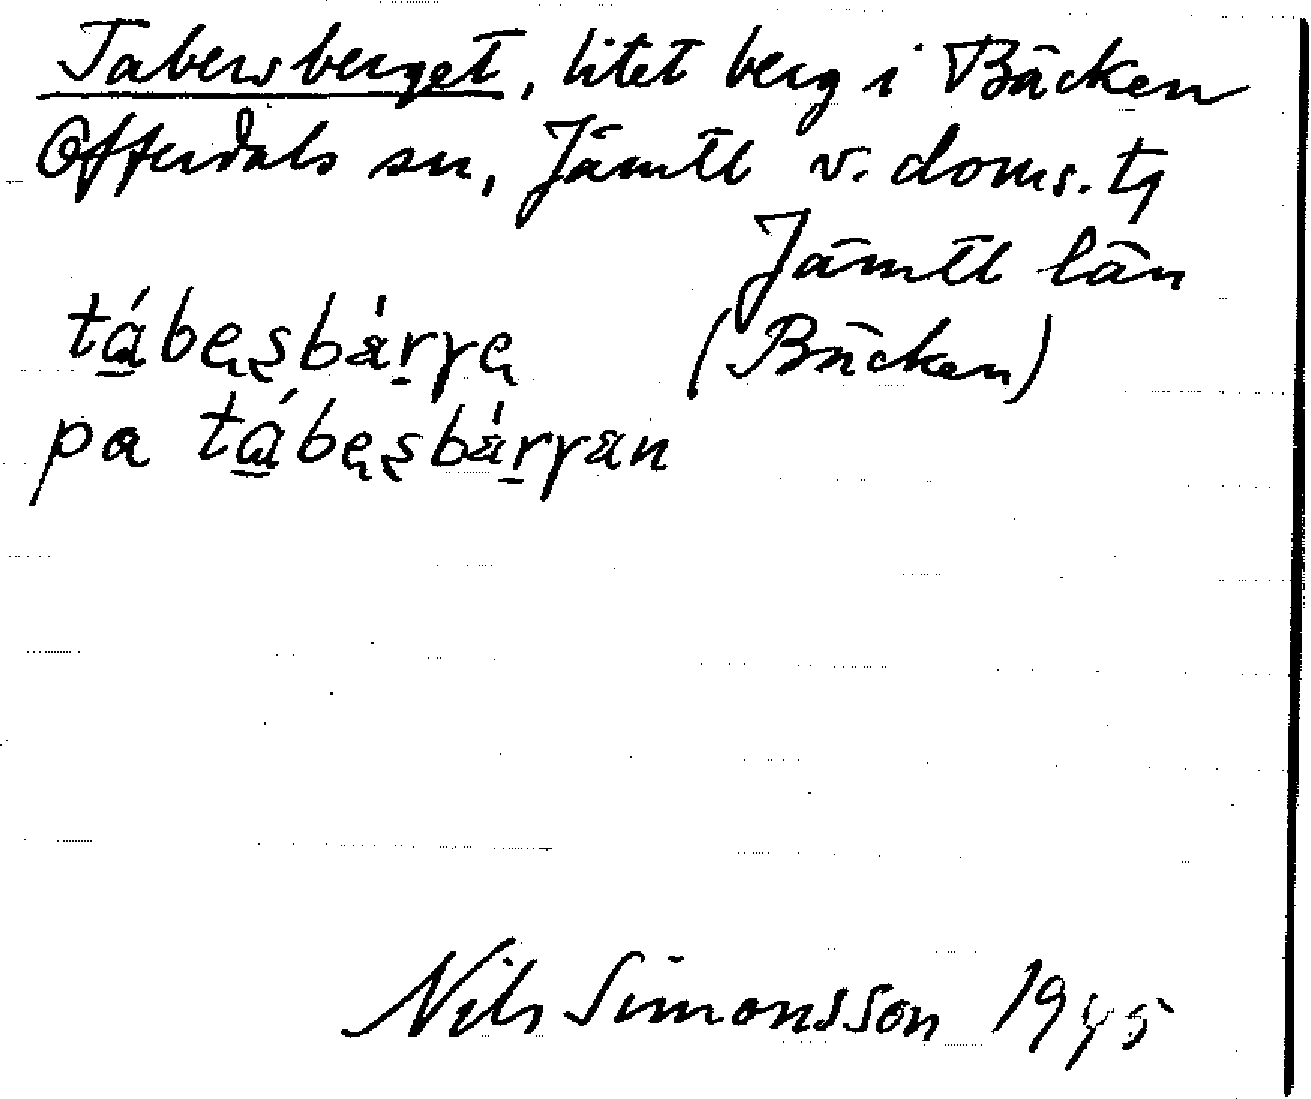 Tabersberget, litet berg i Bäcken
Offerdals sn, Jämtl v. doms. tg
Jämtl län
tábęşbárγę (Bäcken)
pa tábęşbárγan
Nils Simonsson 1945